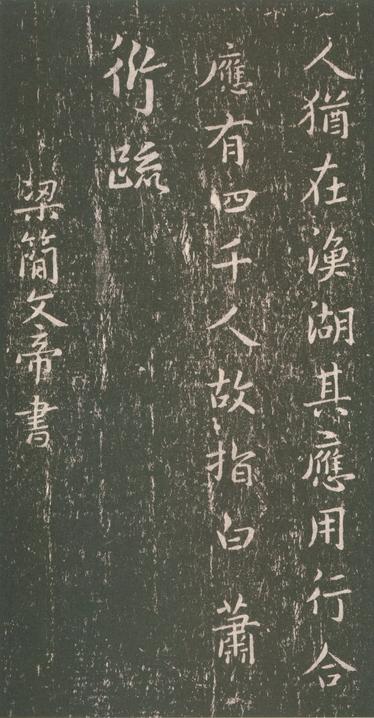 人猶在渔湖其應用行合
應有四千人故指白 蕭
衍疏
梁簡文帝書